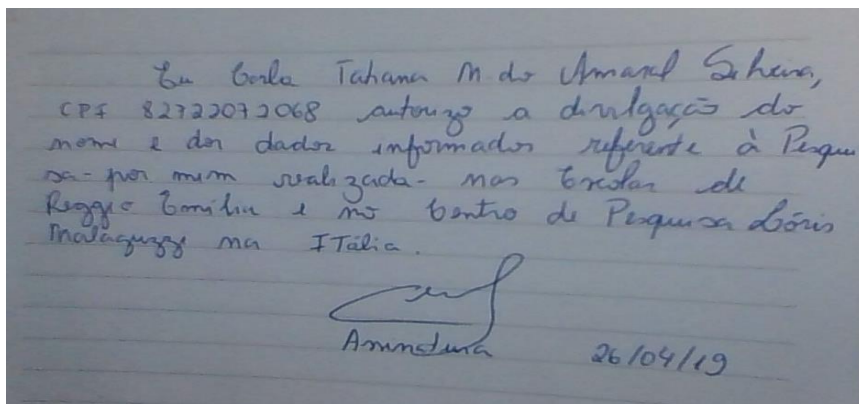 Eu Carla Tahana M. do Amaral Silveira,
CPF 82722072068 autorizo a divulgação do
nome e dos dados informados referente à Pesqui
sa - por mim realizada - nas Escolas de
Reggio Emília e no Centro de Pesquisa Lóris
Malaguzzi na ITália.
Assinatura 26/04/19